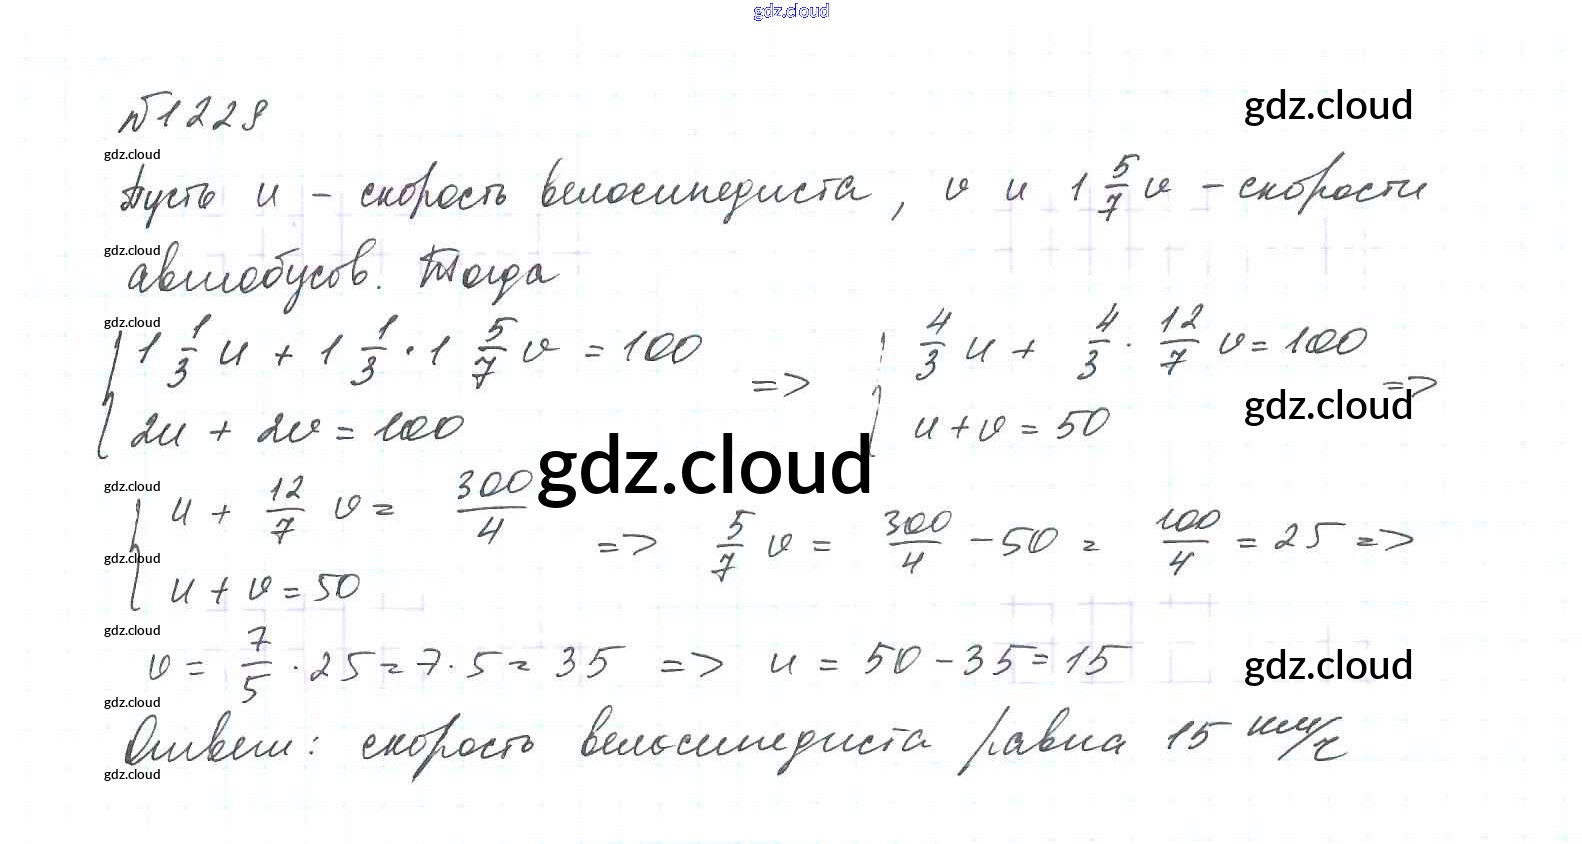 gdz.cloud
№1229
gdz.cloud
gdz.cloud
Пусть u - скорость велосипедиста, v и 1 5/7 v - скорости
gdz.cloud
автобусов. Тогда
gdz.cloud
{ 1 1/3 u + 1 1/3 · 1 5/7 v = 100 => { 4/3 u + 4/3 · 12/7 v = 100 =>
2u + 2v = 100 u + v = 50
gdz.cloud
gdz.cloud
gdz.cloud
{ u + 12/7 v = 300/4 => 5/7 v = 300/4 - 50 = 100/4 = 25 =>
gdz.cloud
u + v = 50
gdz.cloud
v = 7/5 · 25 = 7 · 5 = 35 => u = 50 - 35 = 15
gdz.cloud
gdz.cloud
Ответ: скорость велосипедиста равна 15 км/ч
gdz.cloud